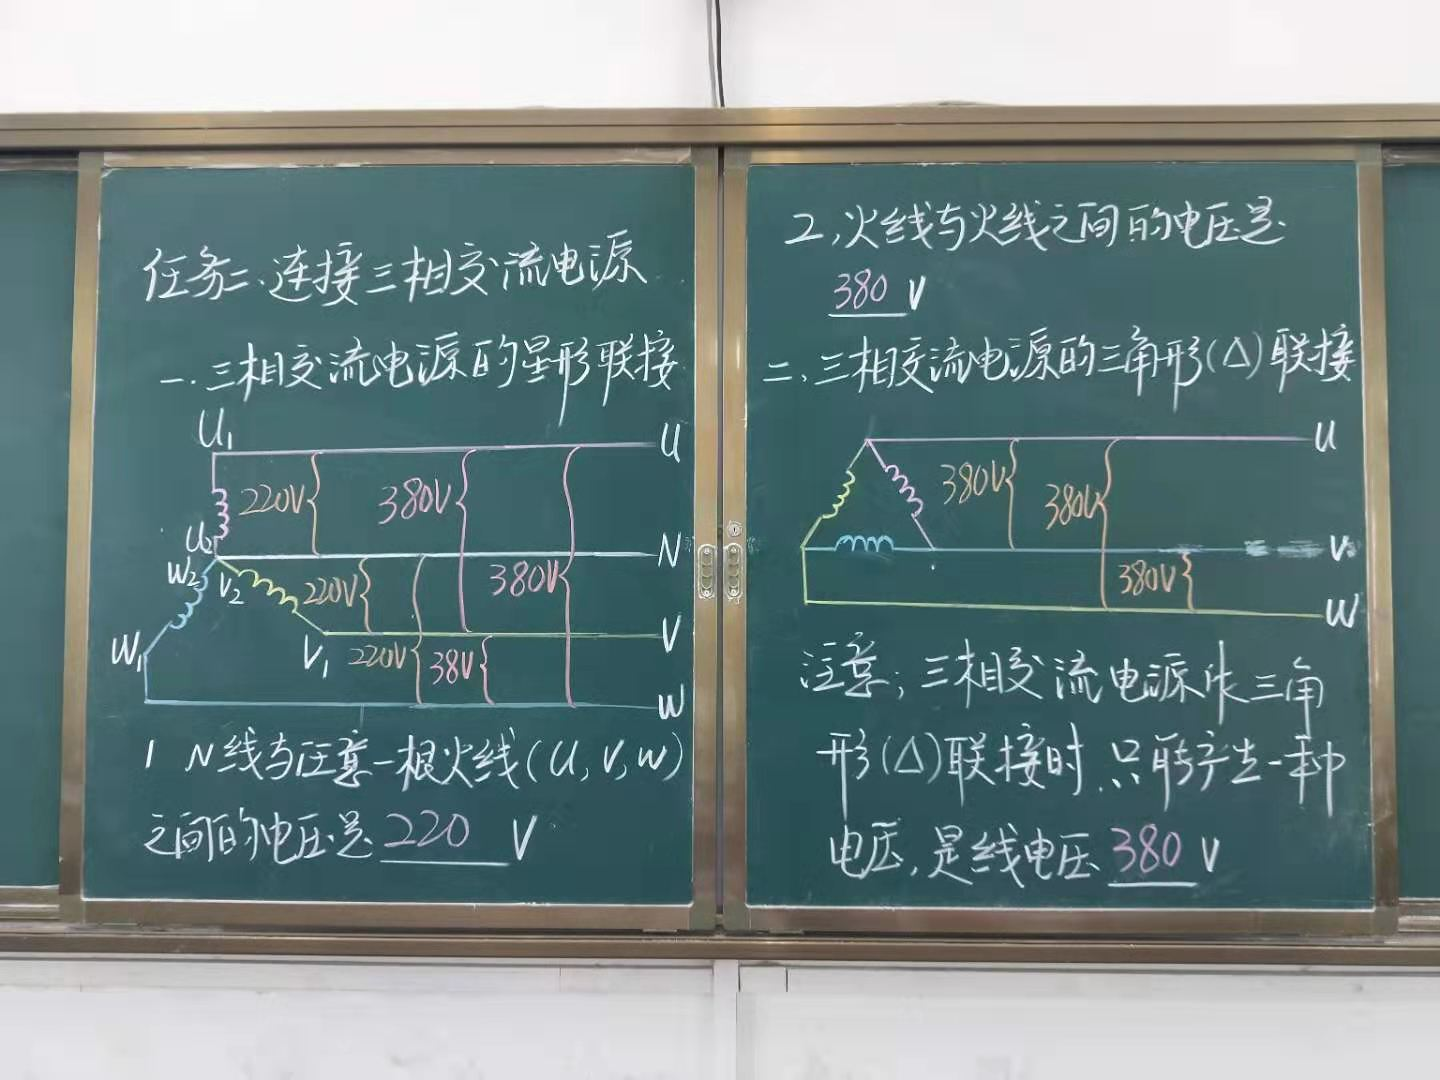 任务二、连接三相交流电源
一.三相交流电源的星形联接
U₁
U
220V
380V
U₂
N
W₂
V₂
220V
380V
W₁
V₁
220V
38V
V
W
1 N线与任意一根火线(U,V,W)
之间的电压是220 V
2,火线与火线之间的电压是
380 V
二、三相交流电源的三角形(△)联接
U
380V
380V
V
380V
W
注意;三相交流电源作三角
形(△)联接时,只能产生一种
电压,是线电压380 V